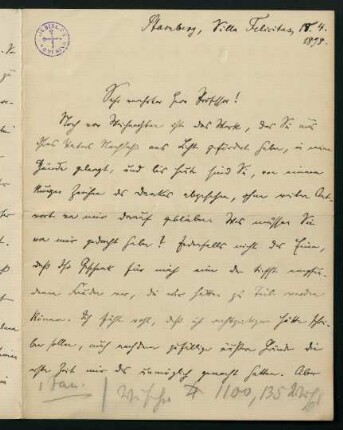 Starnberg, Villa Felicitas, 18.4.
1898.
Sehr verehrter Herr Professor!
Noch vor Weihnachten ist das Werk, das Sie aus
Ihres Vaters Nachlaß ans Licht gefördert haben, in meine
Hände gelangt, und bis heute sind Sie, von einem
kurzen Zeichen des Dankes abgesehen, ohne weitere Ant-
wort von mir darauf geblieben. Was müssen Sie
von mir gedacht haben! Jedenfalls nicht das Eine,
daß Ihr Geschenk für mich eine der tiefst empfun-
denen Freuden war, die mir hätten zu Teil werden
können. Ich fühle wohl, daß ich rechtzeitiger hätte schrei-
ben sollen, auch nachdem zufällige äußere Gründe die
erste Zeit mir es unmöglich gemacht hatten. Aber
1100, 135